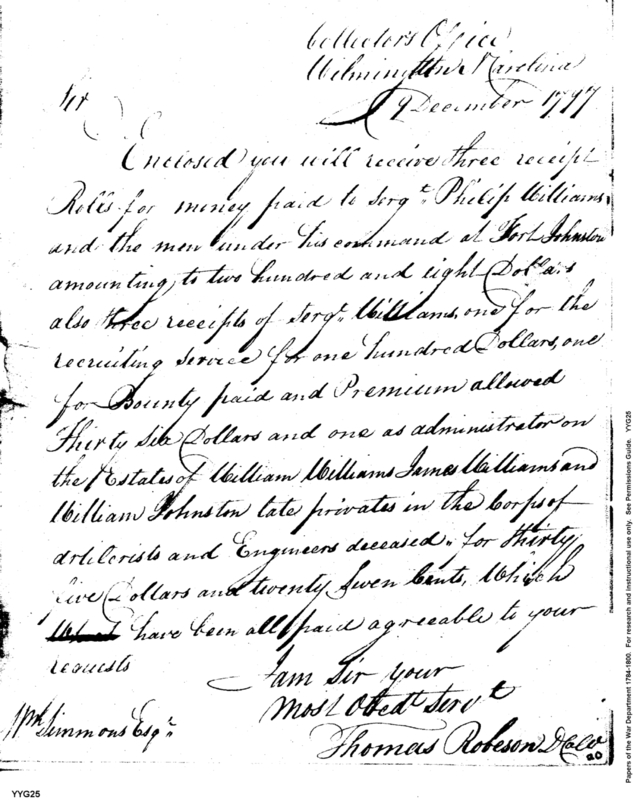 Collectors Office
Wilmington N Carolina
9 December 1797
Sir
Enclosed you will receive three receipt
Rolls for money paid to Sergt. Philip Williams,
and the men under his command at Fort Johnston
amounting to two hundred and eight Dollars
also three receipts of Sergt. Williams, one for the
recruiting service for one hundred Dollars, one
for Bounty paid and Premium allowed
Thirty Six Dollars and one as administrator on
the Estates of William Williams James Williams and
William Johnston late privates in the Corps of
Artilerists and Engineers deceased for thirty
five Dollars and twenty Seven Cents, Which
have been all paid agreeable to your
requests
I am Sir your
Most Obedt Servt
Wm Simmons Esqr.
Thomas Robeson D Coll
20
YYG25
Papers of the War Department 1784-1800. For research and instructional use only. See Permissions Guide. YYG25